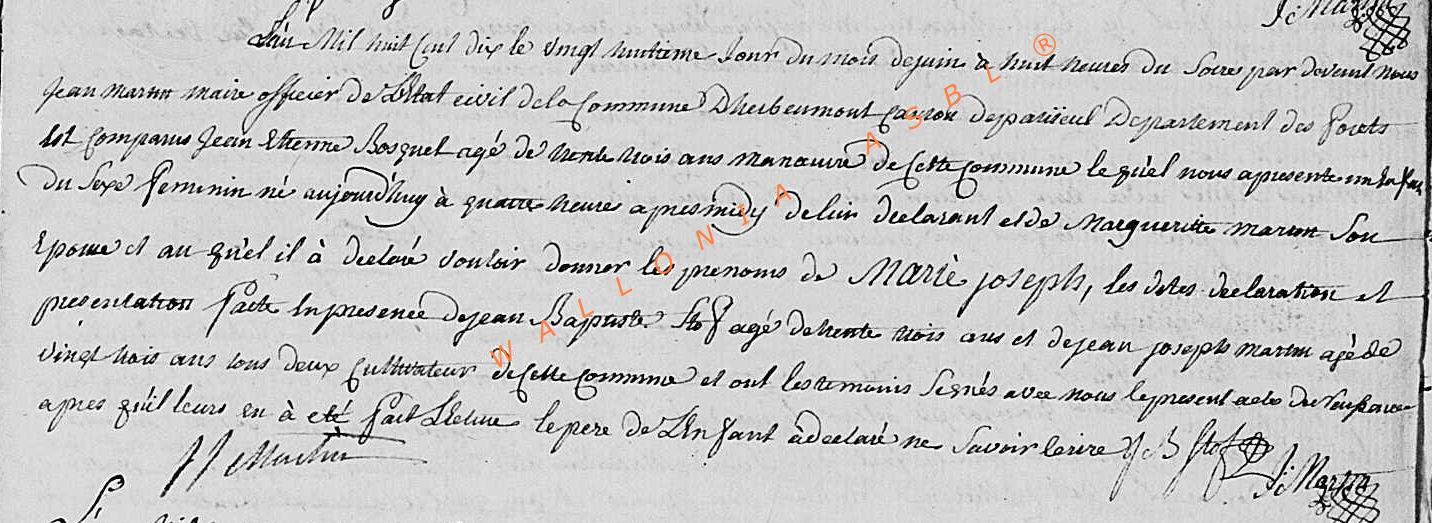 J: Martin
L'an Mil huit Cent dix le vingt huitieme Jour du mois de juin à huit heures du Soire par devent Nous
Jean Martin maire officier de L'Etat civil de la Commune D'herbeumont canton de paliseul Departement des forets
Est Comparus Jean Etienne Bosquet agé de trente trois ans manœuvre de Cette Commune le quel nous a presente un Enfan
du Sexe feminin né aujourd'huy à quatre heure apres midy de luy declarant et de Margueritte martin Son
Epouse et au qu'el il à declaré vouloir donner les prenoms de Marie joseph, les dites declaration et
presentation faite En presence de jean Baptiste Stof agé de trente trois ans et de jean joseph martin agè de
vingt trois ans tous deux Cultivateur de Cette Commune et ont les temoins Signés avec nous le present acte de naissance
apres qu'il leurs en à eté fait Lecture le pere de L'Enfant à declaré ne Savoir Ecrire J B Stof
JJ Martin
J: Martin
WALLONIA ASBL ®